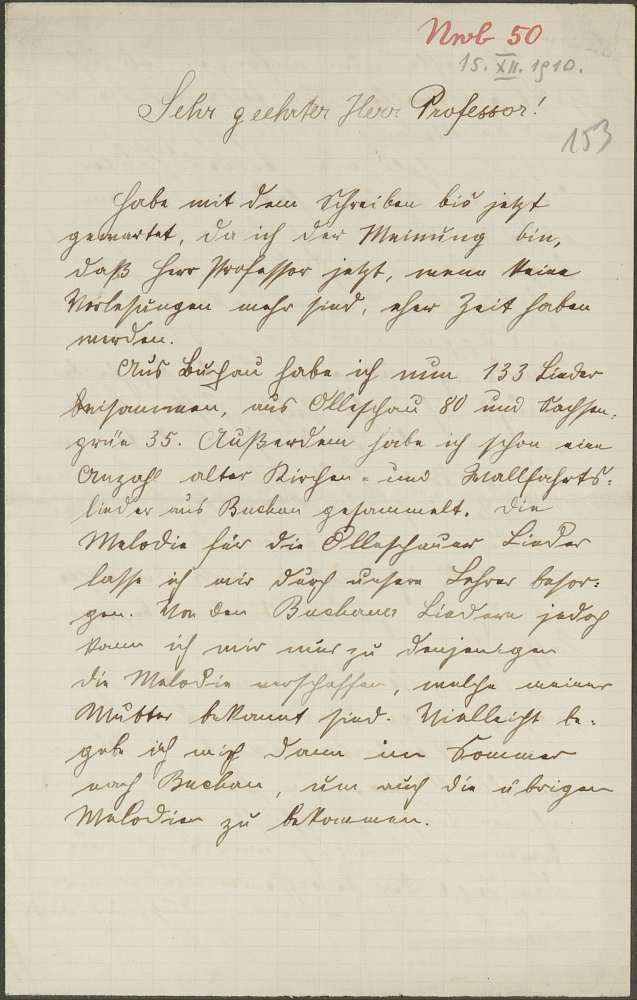 Nrb 50
15. XII. 1910.
Sehr geehrter Herr Professor!
153
Habe mit dem Schreiben bis jetzt
gewartet, da ich der Meinung bin,
daß Herr Professor jetzt, wenn keine
Vorlesungen mehr sind, eher Zeit haben
werden.
Aus Buchau habe ich nun 133 Lieder
beisammen, aus Olleschau 80 und Sachsen-
grün 35. Außerdem habe ich schon eine
Anzahl alter Kirchen- und Wallfahrts-
lieder aus Buchau gesammelt. Die
Melodie für die Olleschauer Lieder
lasse ich mir durch unsern Lehrer besor-
gen. Von den Buchauer Liedern jedoch
kann ich mir nur zu denjenigen
die Melodie verschaffen, welche meiner
Mutter bekannt sind. Vielleicht be-
gebe ich mich dann im Sommer
nach Buchau, um auch die übrigen
Melodien zu bekommen.